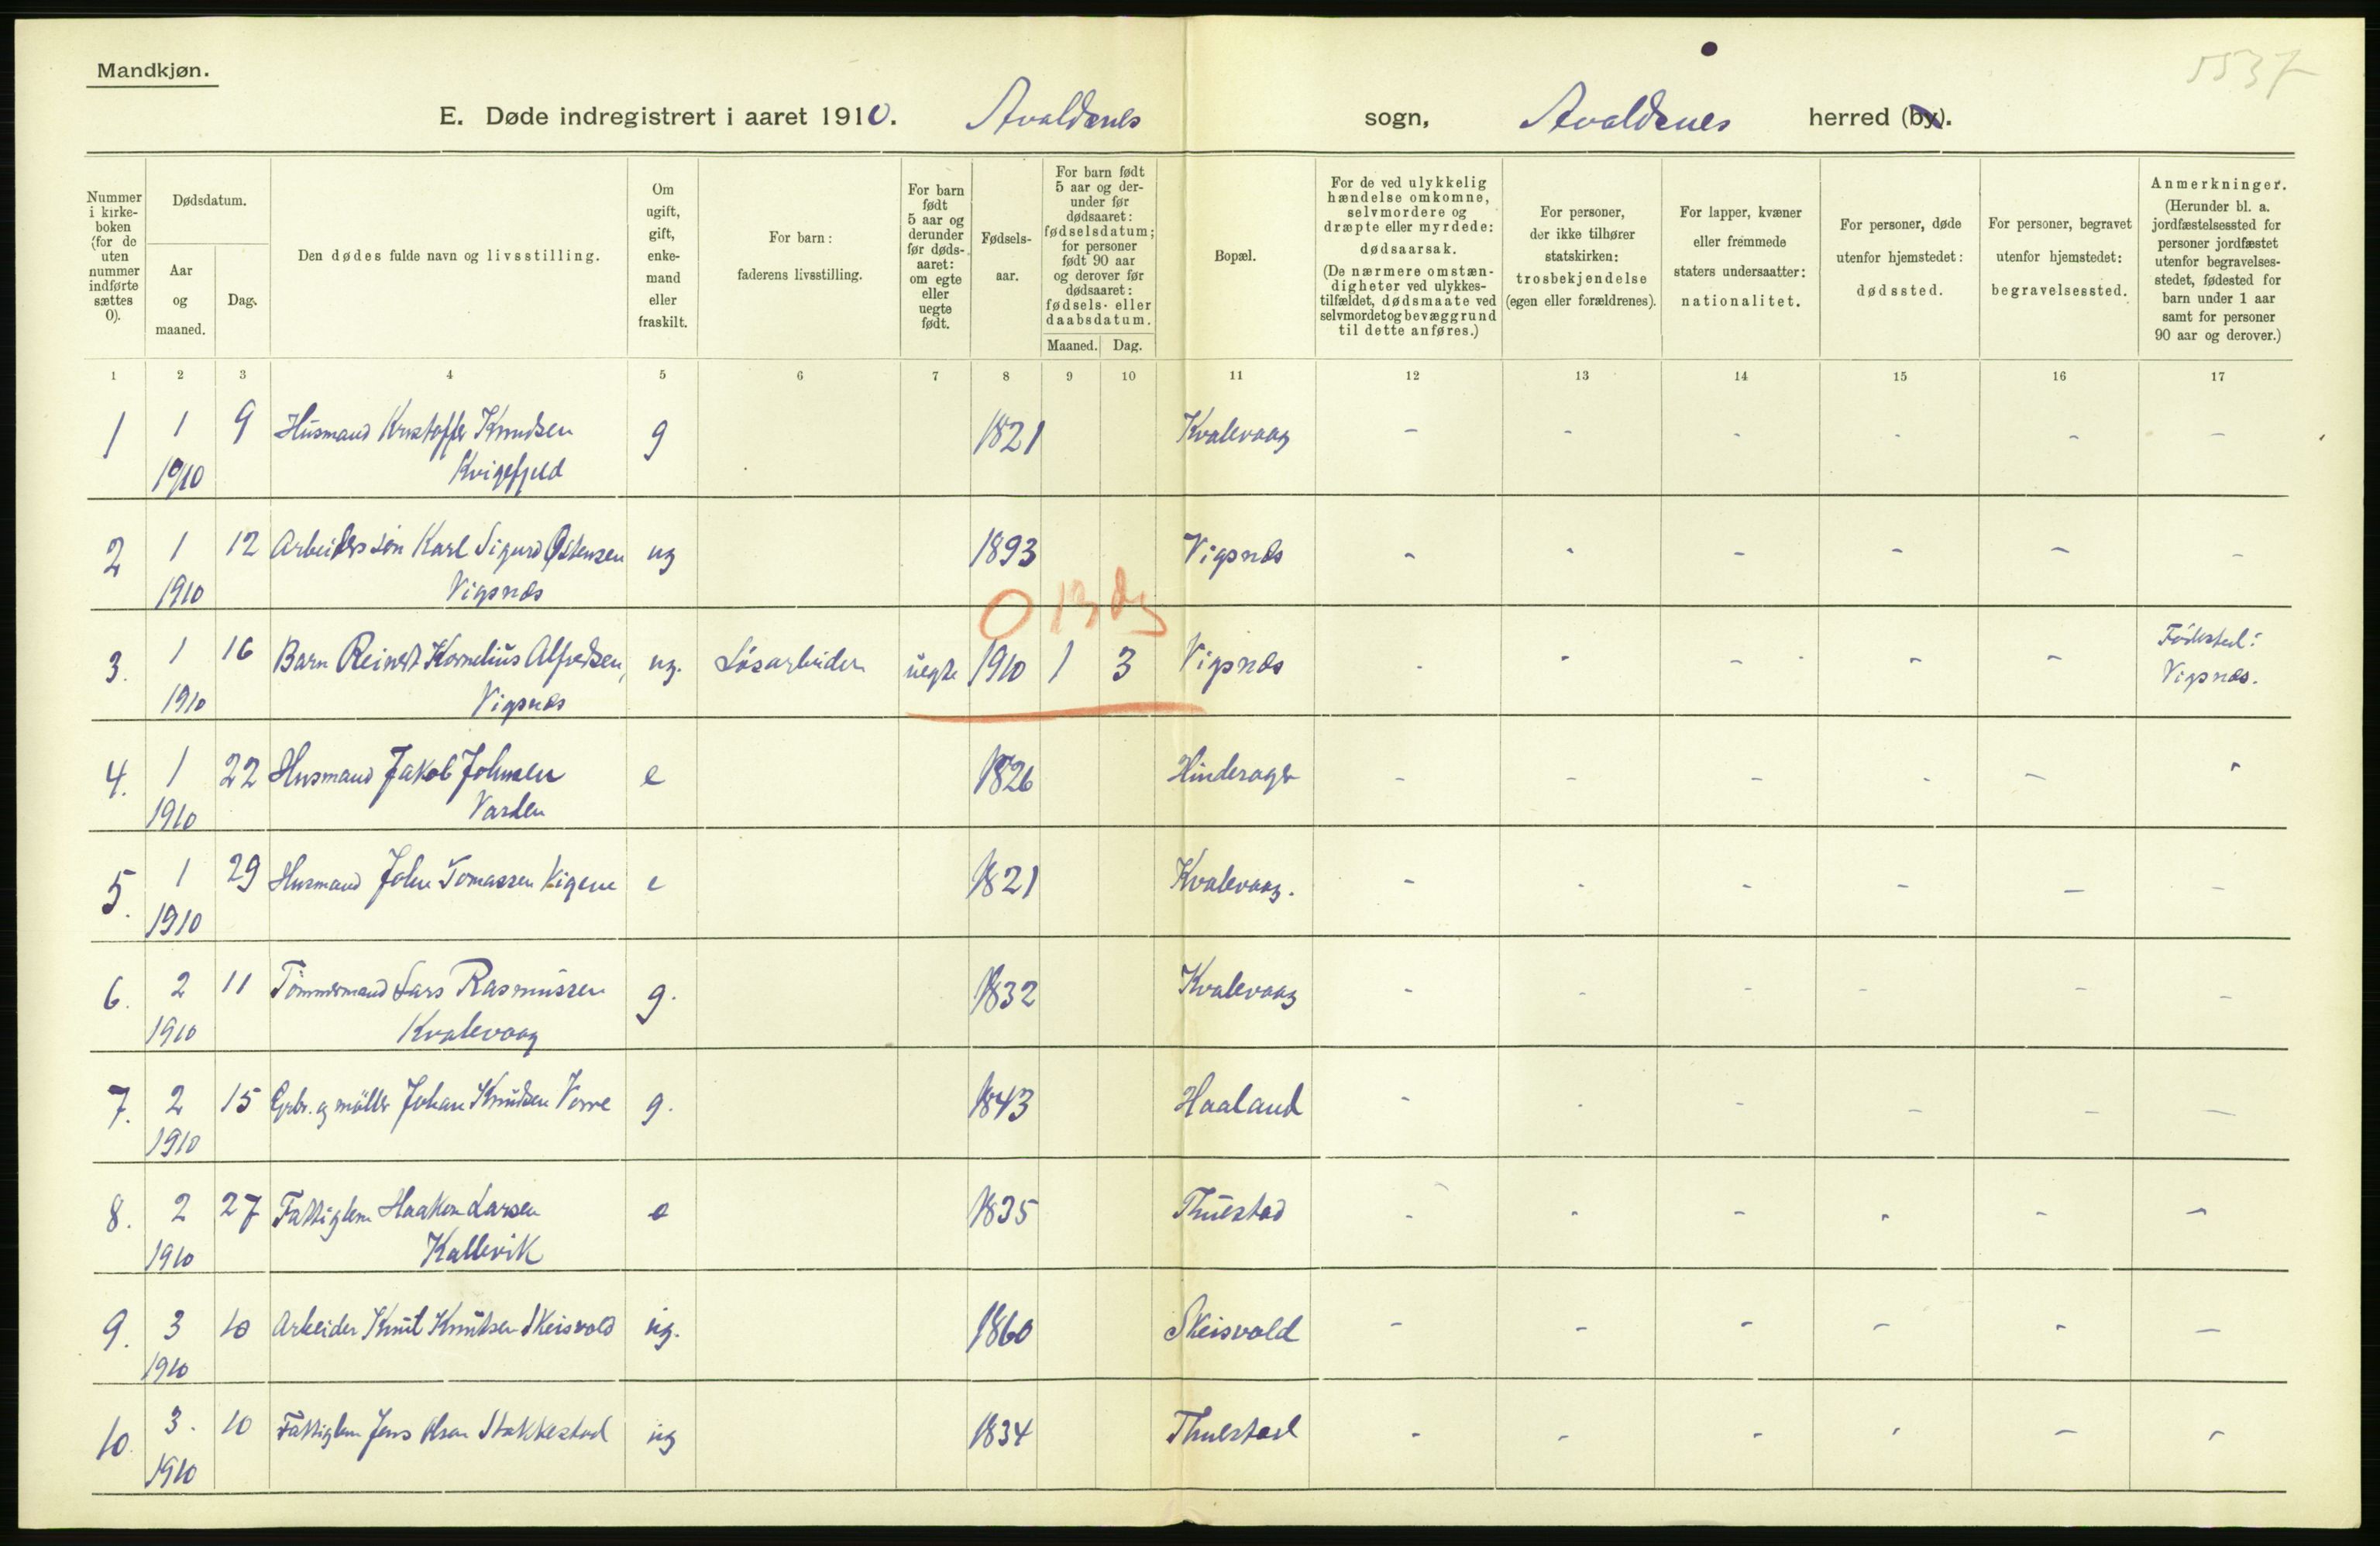 Mandkjøn.
5537
E. Døde indregistrert i aaret 1910. Avaldsnes sogn, Avaldsnes herred (by).
Nummer i kirkeboken (for de uten nummer indførte sættes 0).
Dødsdatum.
Aar og maaned.
Dag.
Den dødes fulde navn og livsstilling.
Om ugift, gift, enkemand eller fraskilt.
For barn: faderens livsstilling.
For barn født 5 aar og derunder før dødsaaret: om egte eller uegte født.
Fødselsaar.
For barn født 5 aar og derunder før dødsaaret: fødselsdatum; for personer født 90 aar og derover før dødsaaret: fødsels- eller daabsdatum.
Maaned. Dag.
Bopæl.
For de ved ulykkelig hændelse omkomne, selvmordere og dræpte eller myrdede: dødsaarsak.
(De nærmere omstændigheter ved ulykkestilfældet, dødsmaate ved selvmordet og bevæggrund til dette anføres.)
For personer, der ikke tilhører statskirken: trosbekjendelse (egen eller forældrenes).
For lapper, kvæner eller fremmede staters undersaatter: nationalitet.
For personer, døde utenfor hjemstedet: dødssted.
For personer, begravet utenfor hjemstedet: begravelsessted.
Anmerkninger.
(Herunder bl. a. jordfæstelsessted for personer jordfæstet utenfor begravelsesstedet, fødested for barn under 1 aar samt for personer 90 aar og derover.)
1 2 3 4 5 6 7 8 9 10 11 12 13 14 15 16 17
1 1 9 Husmand Kristoffer Knudsen g 1821 Kvalevaag - - - - - -
1910 Kvigefjeld
2 1 12 Arbeiders søn Karl Sigurd Østensen ug 1893 Vigsnæs - - - - - -
1910 Vigsnæs
0 13 dg
3. 1 16 Barn Reinert Kornelius Alfredsen, ug. Løsarbeider uegte 1910 1 3 Vigsnæs - - - - - Fødested:
1910 Vigsnæs Vigsnæs.
4. 1 22 Husmand Jakob Johnsen e 1826 Hinderager - - - - - -
1910 Varden
5. 1 29 Husmand John Tomassen Vigene e 1821 Kvalevaag. - - - - - -
1910
6. 2 11 Tømmermand Lars Rasmussen g. 1832 Kvalevaag - - - - - -
1910 Kvalevaag
7. 2 15 Grbr. og møller Johan Knudsen Vorre g. 1843 Haaland - - - - - -
1910
8. 2 27 Fattiglem Haakon Larsen e 1835 Thuestad - - - - - -
1910 Kallevik
9. 3 10 Arbeider Knut Knutsen Skeisvold ug. 1860 Skeisvold - - - - - -
1910
10. 3. 10 Fattiglem Jens Olsen Stakkestad ug 1834 Thuestad - - - - - -
1910